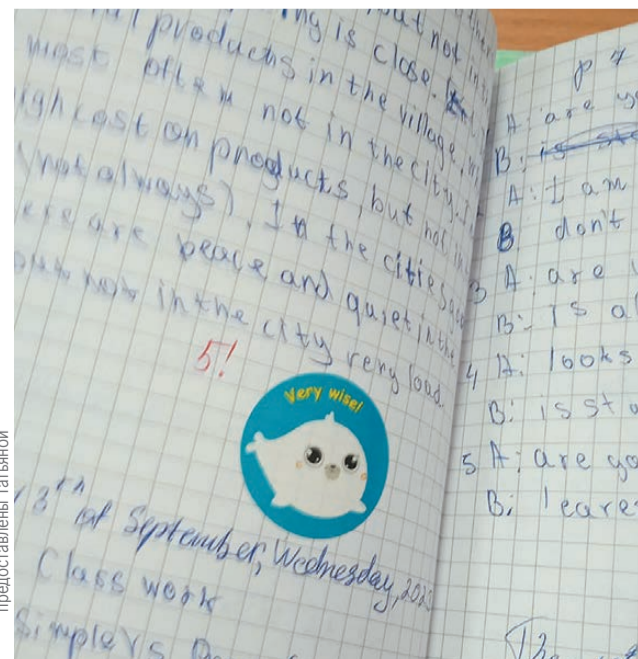 ing is close. but not
products in the village,
most often not in the city.
high cost on products, but not in
(not always). In the cities
are peace and quiet in the
but not in the city very load.
5!
Very wise!
13th of September, Wednesday, 202
Class work
Simple VS
p 7
A: are yo
B: is st
A: I am
B don't
3 A: are
B: is a
4 A: looks
B: is st
5 A: are yo
B: leare
предоставлены Татьяной